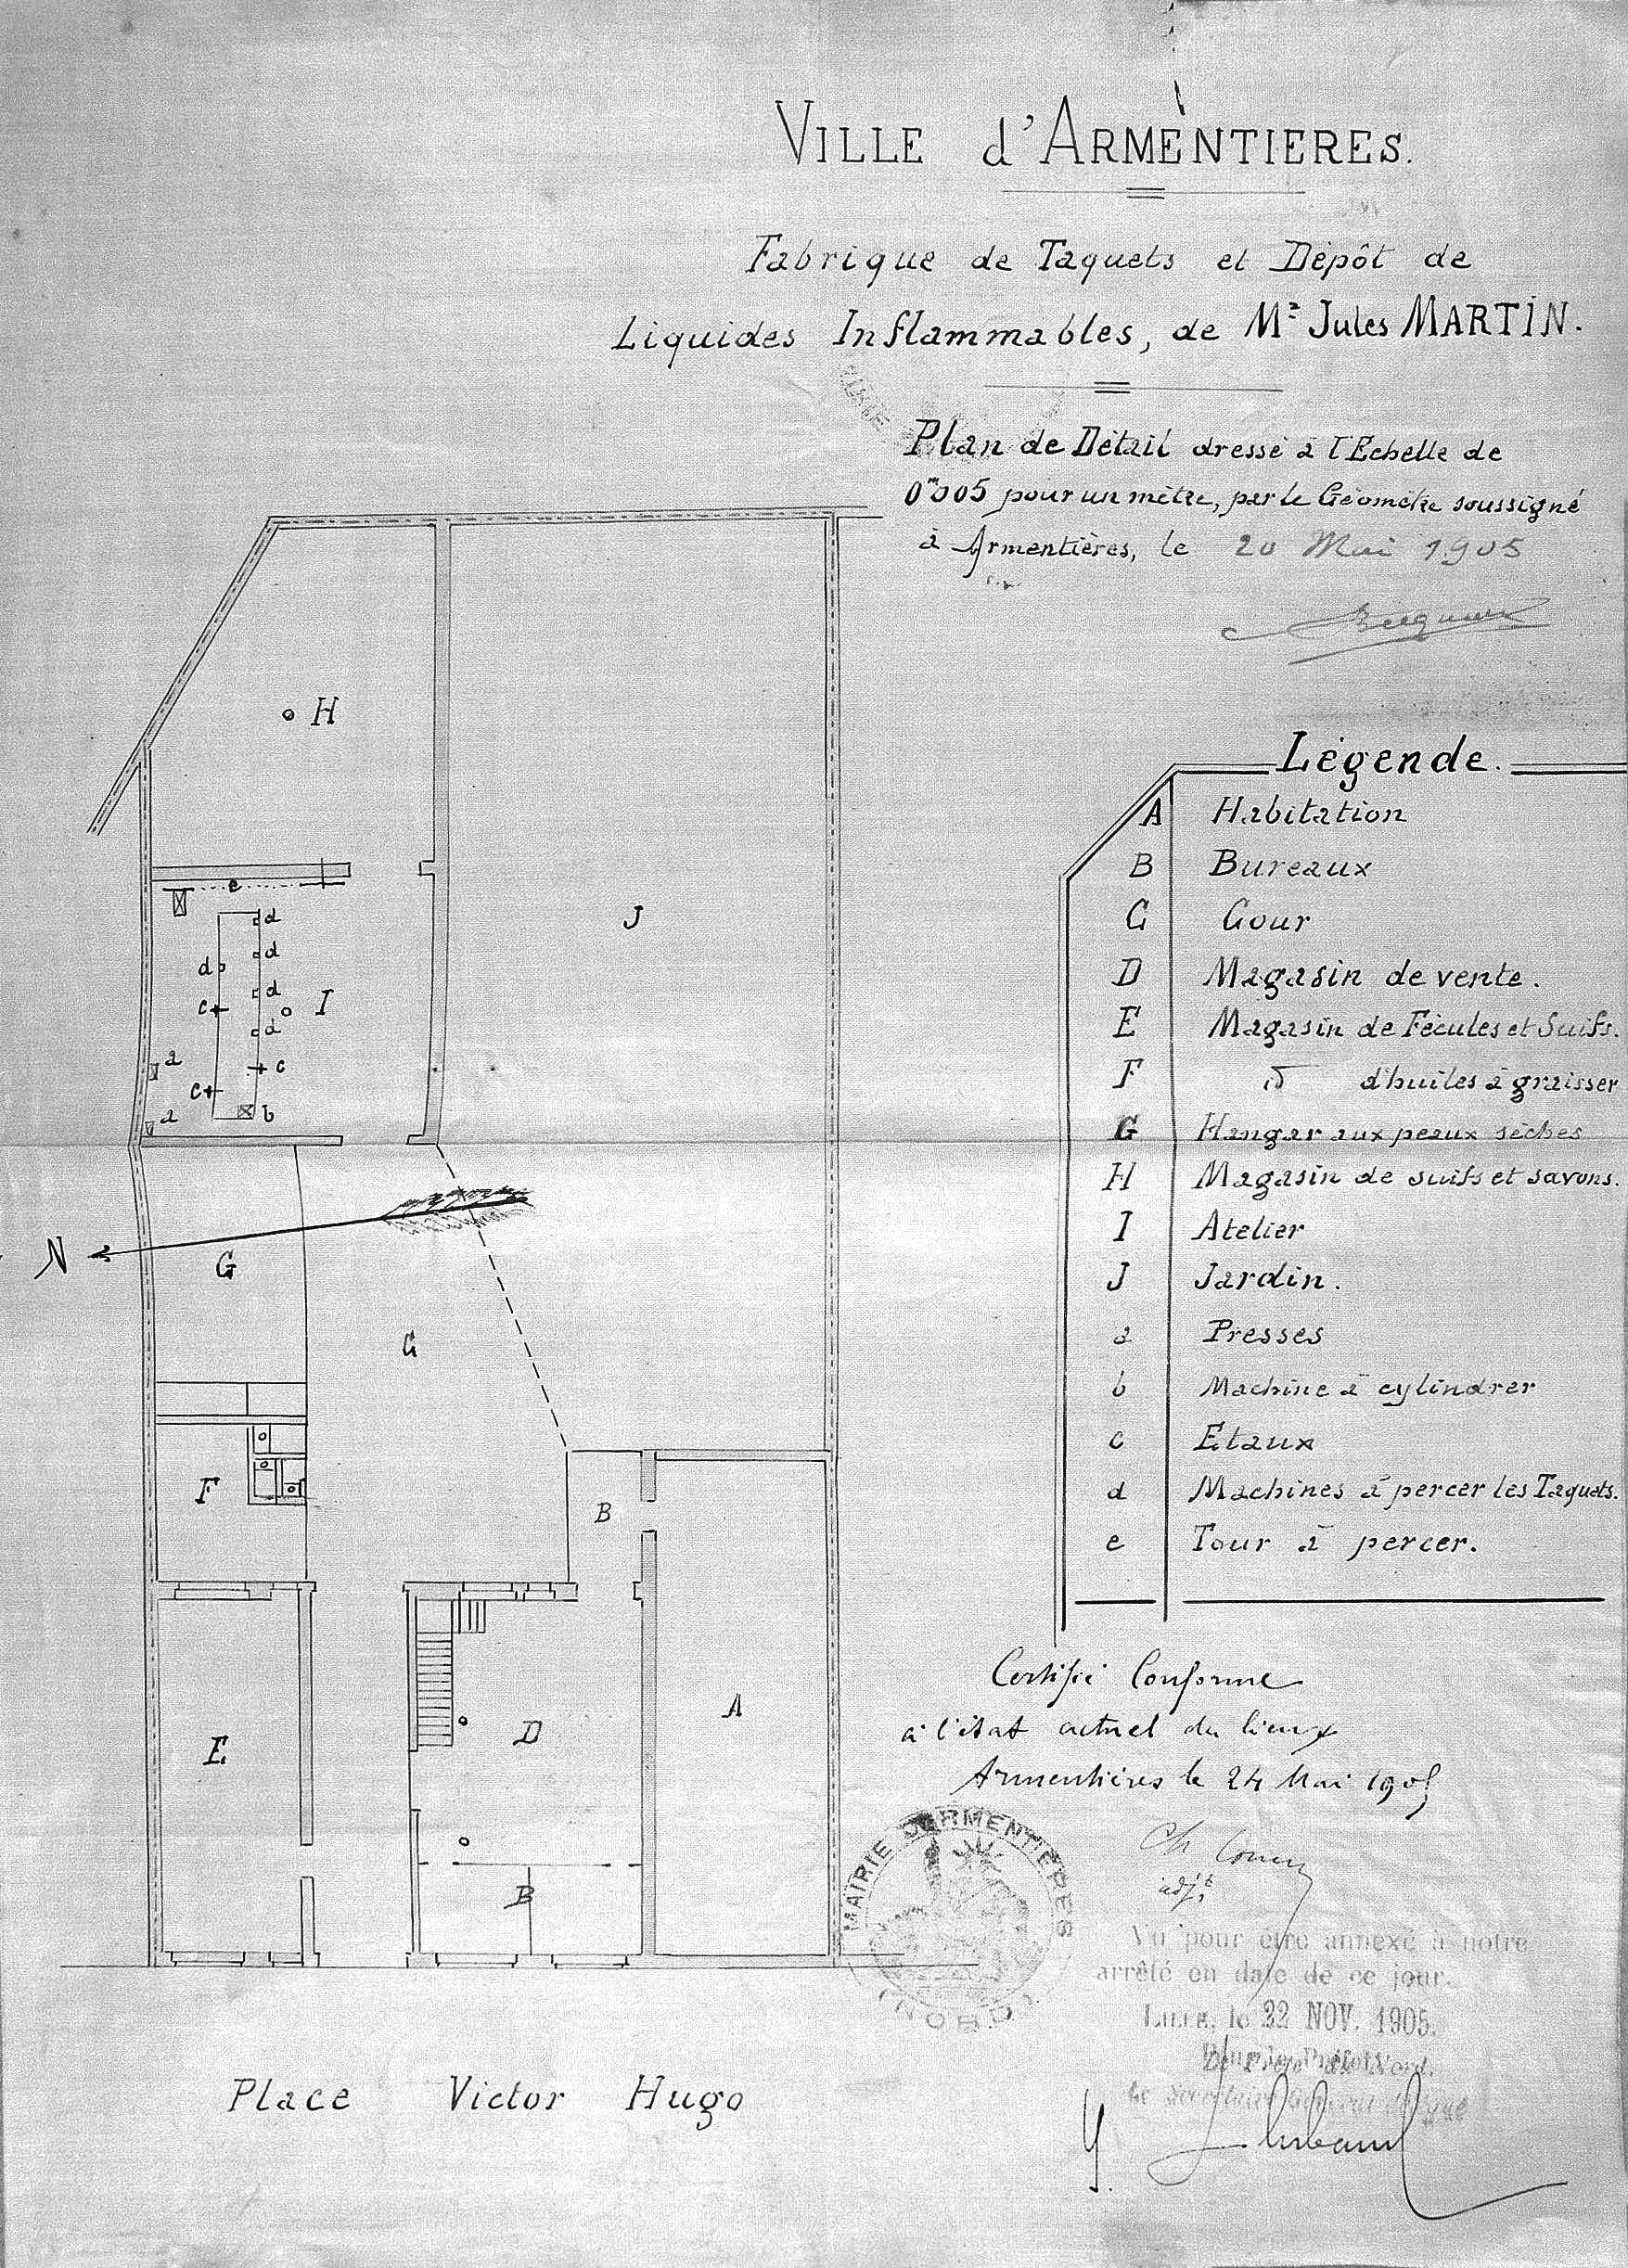 VILLE d'ARMÈNTIERES.
Fabrique de Taquets et Dépôt de
Liquides Inflammables, de Mr Jules MARTIN.
Plan de Détail dressé à l'Echelle de
0m005 pour un mètre, par le Géomètre soussigné
à Armentières, le 20 Mai 1905
H
J
e
d
d
d
d
c
I
d
a
c
c
a
b
N
G
C
F
B
A
D
E
B
Légende.
A Habitation
B Bureaux
C Cour
D Magasin de vente.
E Magasin de Fécules et Suifs.
F d° d'huiles à graisser
G Hangar aux peaux sèches
H Magasin de suifs et savons.
I Atelier
J Jardin.
a Presses
b Machine à cylindrer
c Etaux
d Machines à percer les Taquets.
e Tour à percer.
Certifié Conforme
à l'état actuel du lieux
Armentières le 24 Mai 1905
adjt
MAIRIE D'ARMENTIÈRES
(NORD)
Vu pour être annexé à notre
arrêté en date de ce jour.
LILLE, le 22 NOV. 1905.
Place Victor Hugo